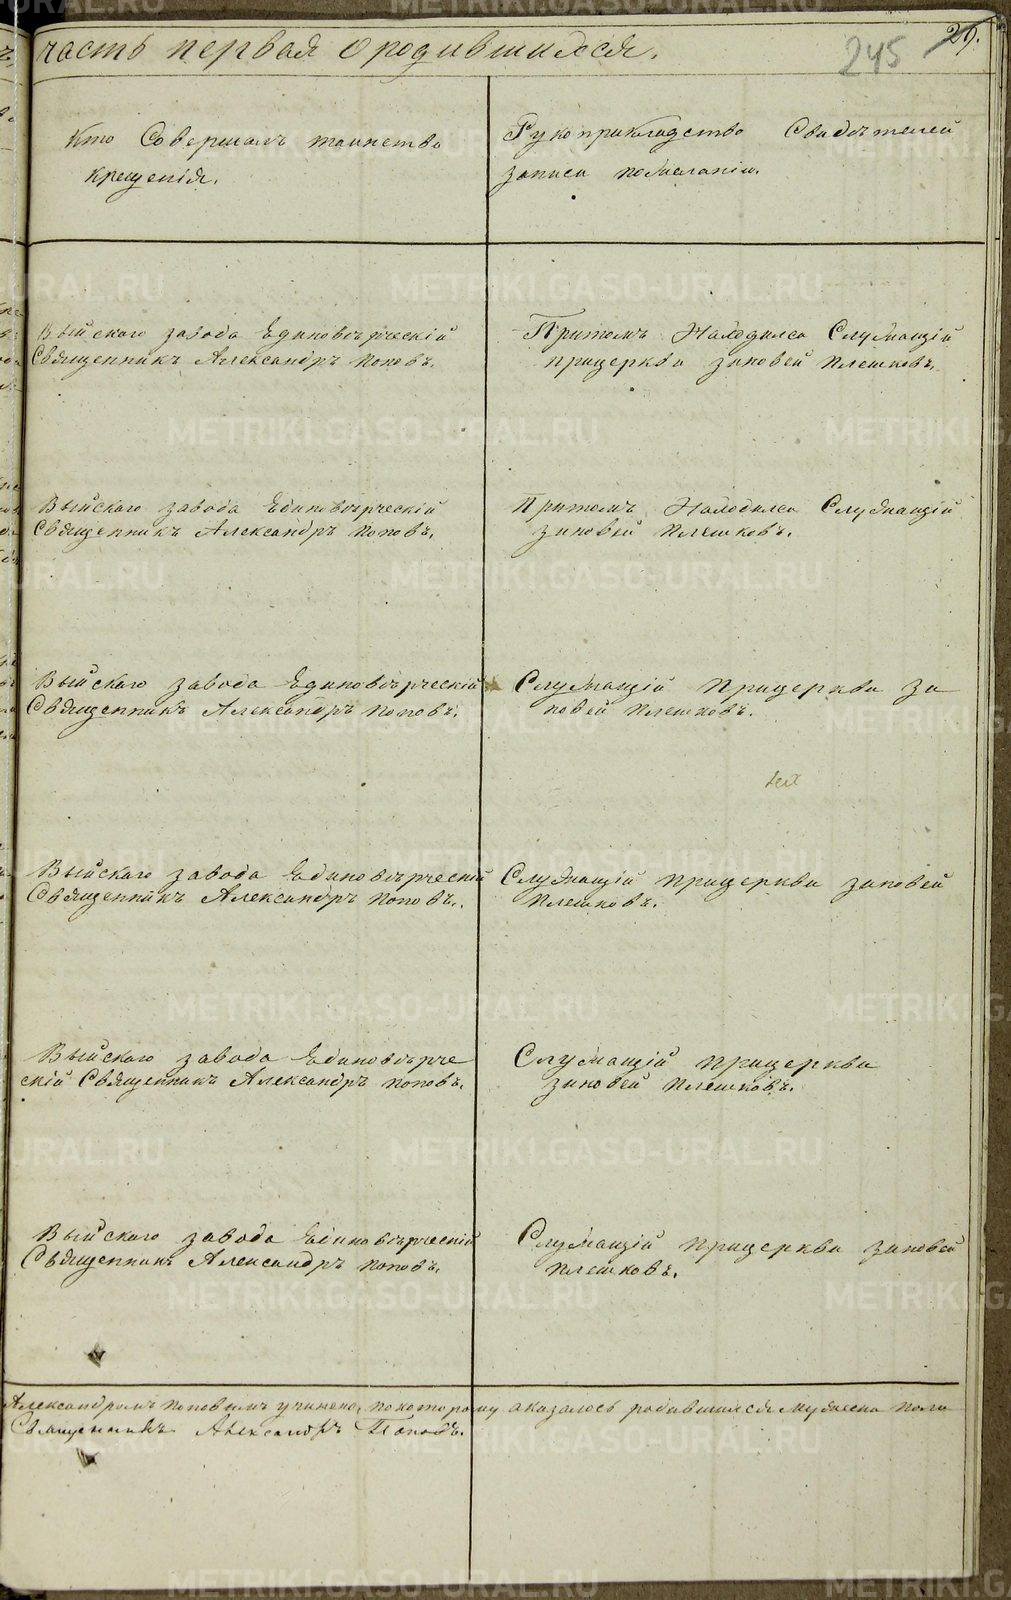 часть первая о родившихся.
245
29.
Кто Совершалъ таинство
крещенія.
Рукоприкладство Свидѣтелей
записи пожеланію.
Выйскаго завода Единовѣрческій
Священникъ Александръ Поповъ.
Притомъ Находился Служащій
прицеркви зиновей Плешковъ.
Выйскаго завода Единовѣрческій
Священникъ Александръ Поповъ.
Притомъ Находился Служащій
зиновей Плешковъ.
Выйскаго завода Единовѣрческій
Священникъ Александръ Поповъ.
Служащій прицеркви зи
новей Плешковъ.
Выйскаго завода Единовѣрческій
Священникъ Александръ Поповъ.
Служащій прицеркви зиновей
Плешковъ.
Выйскаго завода Единовѣрче
скій Священникъ Александръ Поповъ.
Служащій прицеркви
зиновей Плешковъ.
Выйскаго завода Единовѣрческій
Священникъ Александръ Поповъ.
Служащій прицеркви зиновей
Плешковъ.
Александромъ Поповымъ учинено, покоторому оказалось родившихся мужеска пола
Священникъ Александръ Поповъ.
METRIKI.GASO-URAL.RU